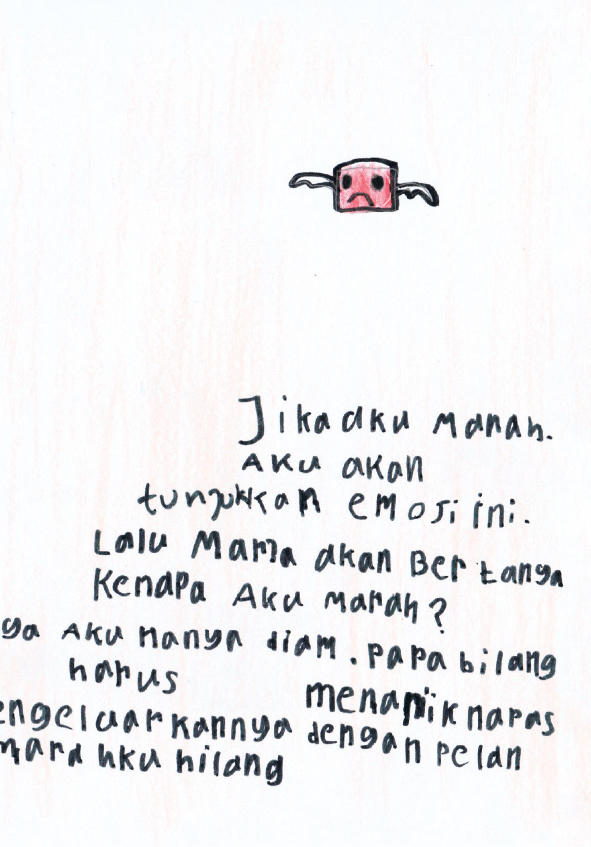 Jika aku Marah.
AKU akan
tunjukkan emoji ini.
Lalu Mama akan Bertanya
Kenapa AKU marah?
ya AKU hanya diam. papa bilang
harus menarik napas
engeluarkannya dengan pelan
marahku hilang